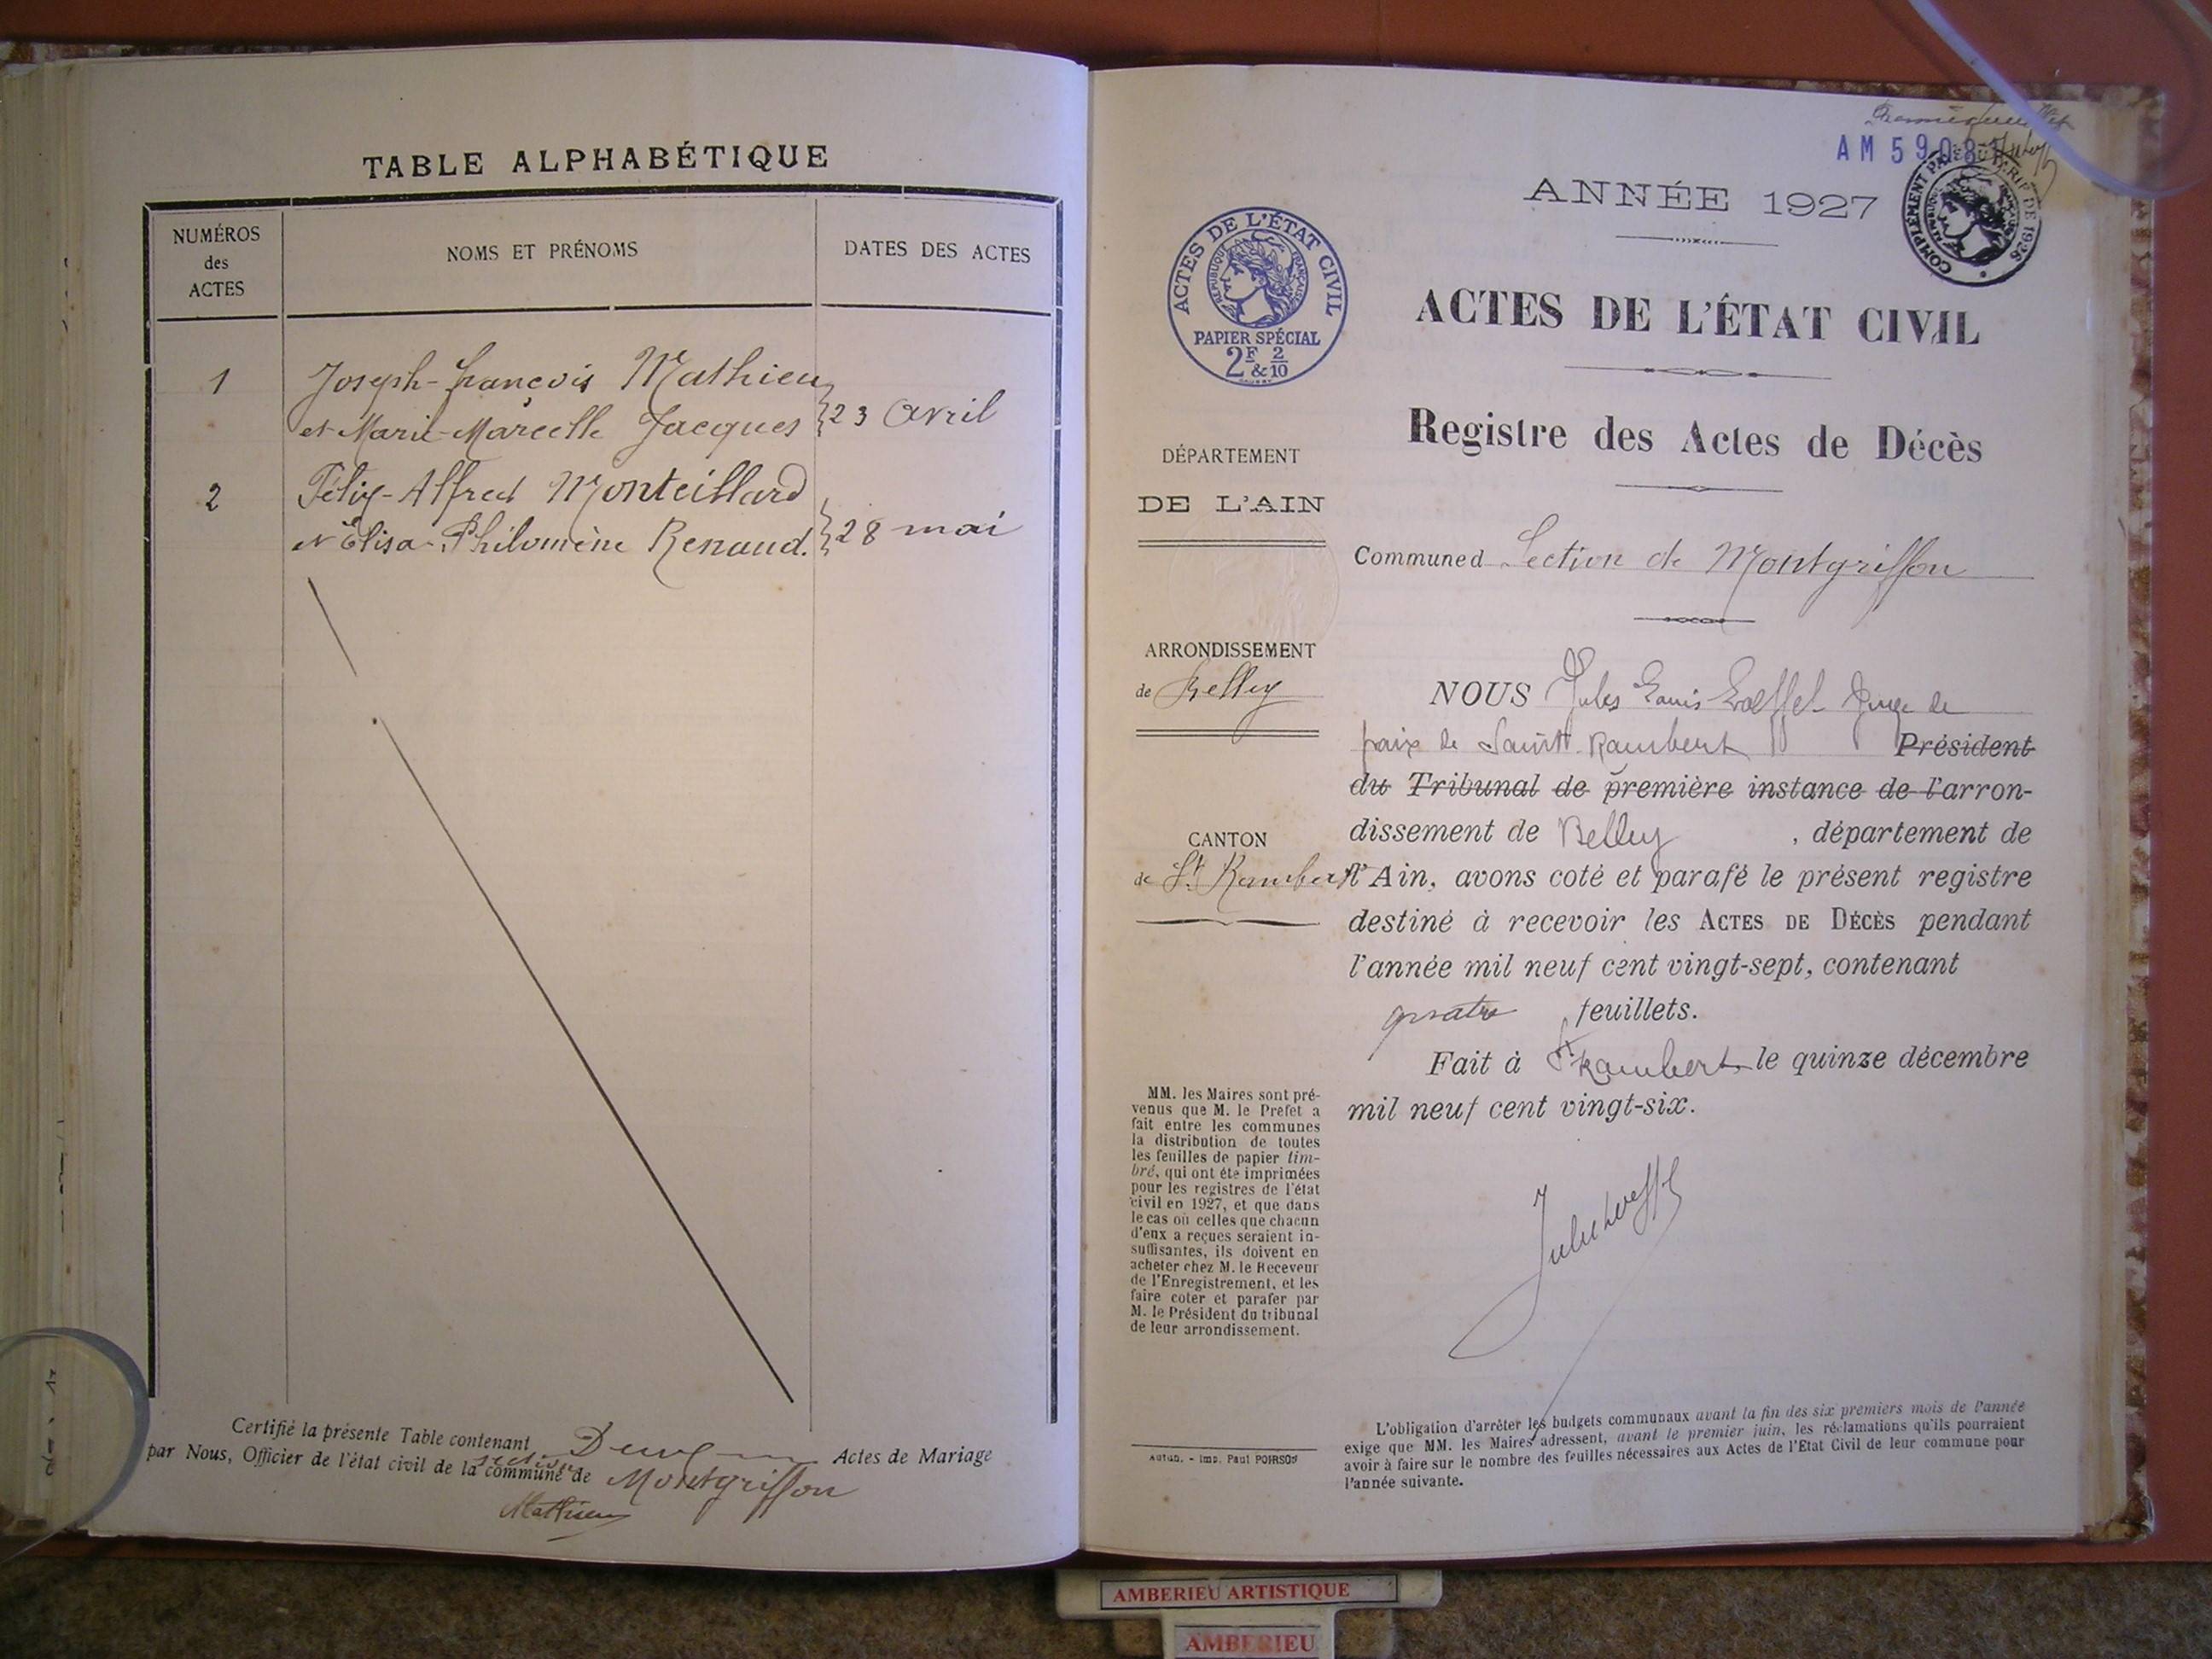 TABLE ALPHABÉTIQUE
NUMÉROS
des
ACTES
NOMS ET PRÉNOMS
DATES DES ACTES
1 Joseph-françois Mathieu
et Marie-Marcelle Jacques } 23 Avril
2 Félix-Alfred Monteillard
et Elisa-Philomène Renaud. } 28 mai
Certifié la présente Table contenant Deux Actes de Mariage
par Nous, Officier de l'état civil de la section commune de Montgriffon
Mathieu
AM 5908
COMPLÉMENT DE 1926
ANNÉE 1927
ACTES DE L'ÉTAT CIVIL
RÉPUBLIQUE FRANÇAISE
PAPIER SPÉCIAL
2F & 2/10
ACTES DE L'ÉTAT CIVIL
Registre des Actes de Décès
DÉPARTEMENT
DE L'AIN
Commune d Section de Montgriffon
ARRONDISSEMENT
de Belley
CANTON
de St Rambert
NOUS Jules Louis Loeffel Juge de
paix de Saint Rambert Président
du Tribunal de première instance de l'arron-
dissement de Belley, département de
l'Ain, avons coté et parafé le présent registre
destiné à recevoir les ACTES DE DÉCÈS pendant
l'année mil neuf cent vingt-sept, contenant
quatre feuillets.
Fait à St Rambert le quinze décembre
mil neuf cent vingt-six.
MM. les Maires sont pré-
venus que M. le Préfet a
fait entre les communes
la distribution de toutes
les feuilles de papier tim-
bré, qui ont été imprimées
pour les registres de l'état
civil en 1927, et que dans
le cas où celles que chacun
d'eux a reçues seraient in-
suffisantes, ils doivent en
acheter chez M. le Receveur
de l'Enregistrement, et les
faire coter et parafer par
M. le Président du tribunal
de leur arrondissement.
Autun. - Imp. Paul POIRSON
L'obligation d'arrêter les budgets communaux avant la fin des six premiers mois de l'année
exige que MM. les Maires adressent, avant le premier juin, les réclamations qu'ils pourraient
avoir à faire sur le nombre des feuilles nécessaires aux Actes de l'Etat Civil de leur commune pour
l'année suivante.
AMBERIEU ARTISTIQUE
AMBERIEU